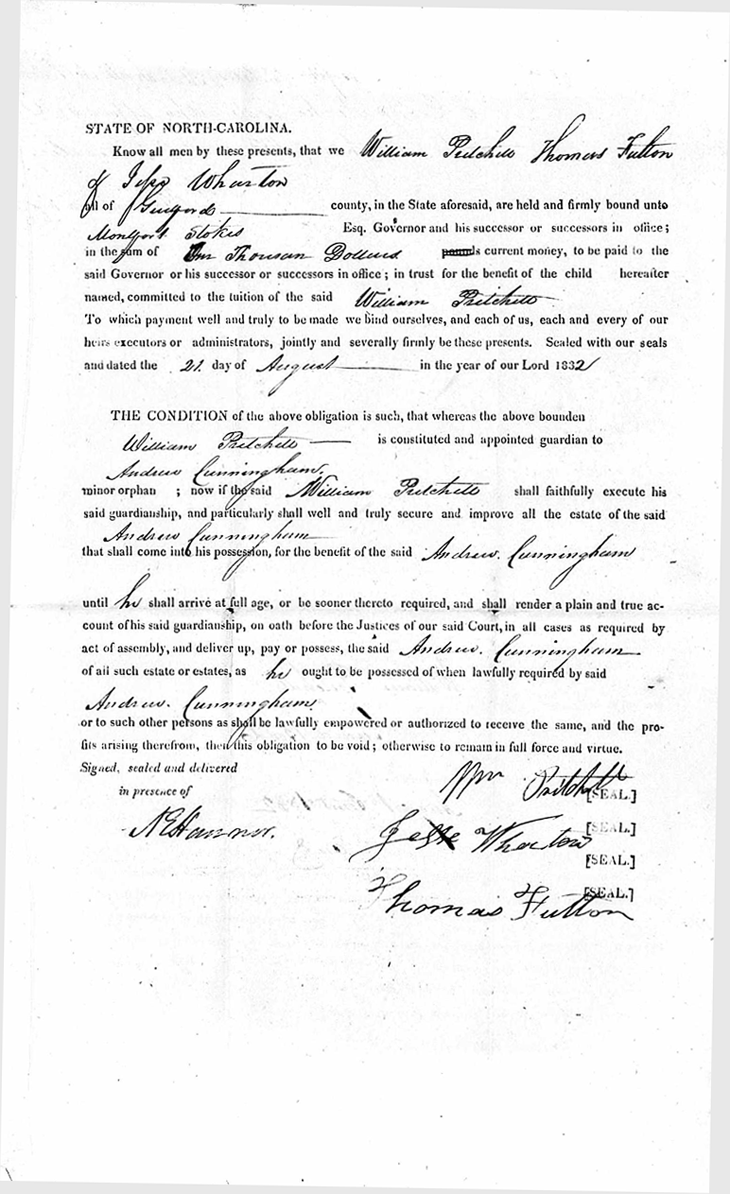 STATE OF NORTH-CAROLINA.
Know all men by these presents, that we William Pritchett Thomas Fulton
& Jesse Wharton
all of Guilford county, in the State aforesaid, are held and firmly bound unto
Montfort Stokes Esq. Governor and his successor or successors in office;
in the sum of One Thousan Dollars pounds current money, to be paid to the
said Governor or his successor or successors in office; in trust for the benefit of the child hereafter
named, committed to the tuition of the said William Pritchett
To which payment well and truly to be made we bind ourselves, and each of us, each and every of our
heirs executors or administrators, jointly and severally firmly be these presents. Sealed with our seals
and dated the 21 day of August in the year of our Lord 1832
THE CONDITION of the above obligation is such, that whereas the above bounden
William Pritchett is constituted and appointed guardian to
Andrew Cunningham,
minor orphan ; now if the said William Pritchett shall faithfully execute his
said guardianship, and particularly shall well and truly secure and improve all the estate of the said
Andrew Cunningham
that shall come into his possession, for the benefit of the said Andrew. Cunningham
until he shall arrive at full age, or be sooner thereto required, and shall render a plain and true ac-
count of his said guardianship, on oath before the Justices of our said Court, in all cases as required by
act of assembly, and deliver up, pay or possess, the said Andrew. Cunningham
of all such estate or estates, as he ought to be possessed of when lawfully required by said
Andrew. Cunningham
or to such other persons as shall be lawfully empowered or authorized to receive the same, and the pro-
fits arising therefrom, then this obligation to be void; otherwise to remain in full force and virtue.
Signed, sealed and delivered
in presence of
Wm Pritchett [SEAL.]
Jesse Wharton [SEAL.]
[SEAL.]
Thomas Fulton [SEAL.]